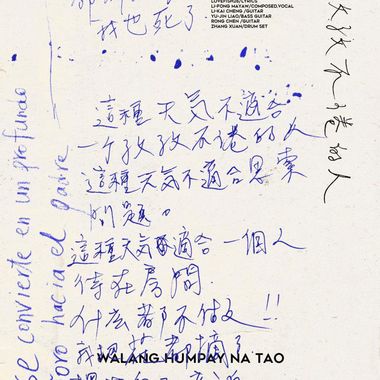 LI-PONG MAYAW/COMPOSED.VOCAL
LI-KAI CHENG /GUITAR
YU-JIN LIAO/BASS GUITAR
RONG CHEN /GUITAR
ZHANG XUAN/DRUM SET
我也死了
這種天氣不適合
一个孜孜不倦的人
這種天氣不適合思索
問題。
這種天氣適合一個人
待在房間.
什么都不做!!
摘了
WALANG HUMPAY NA TAO
孜孜不倦的人
se convierte en un profundo
hacia el padre